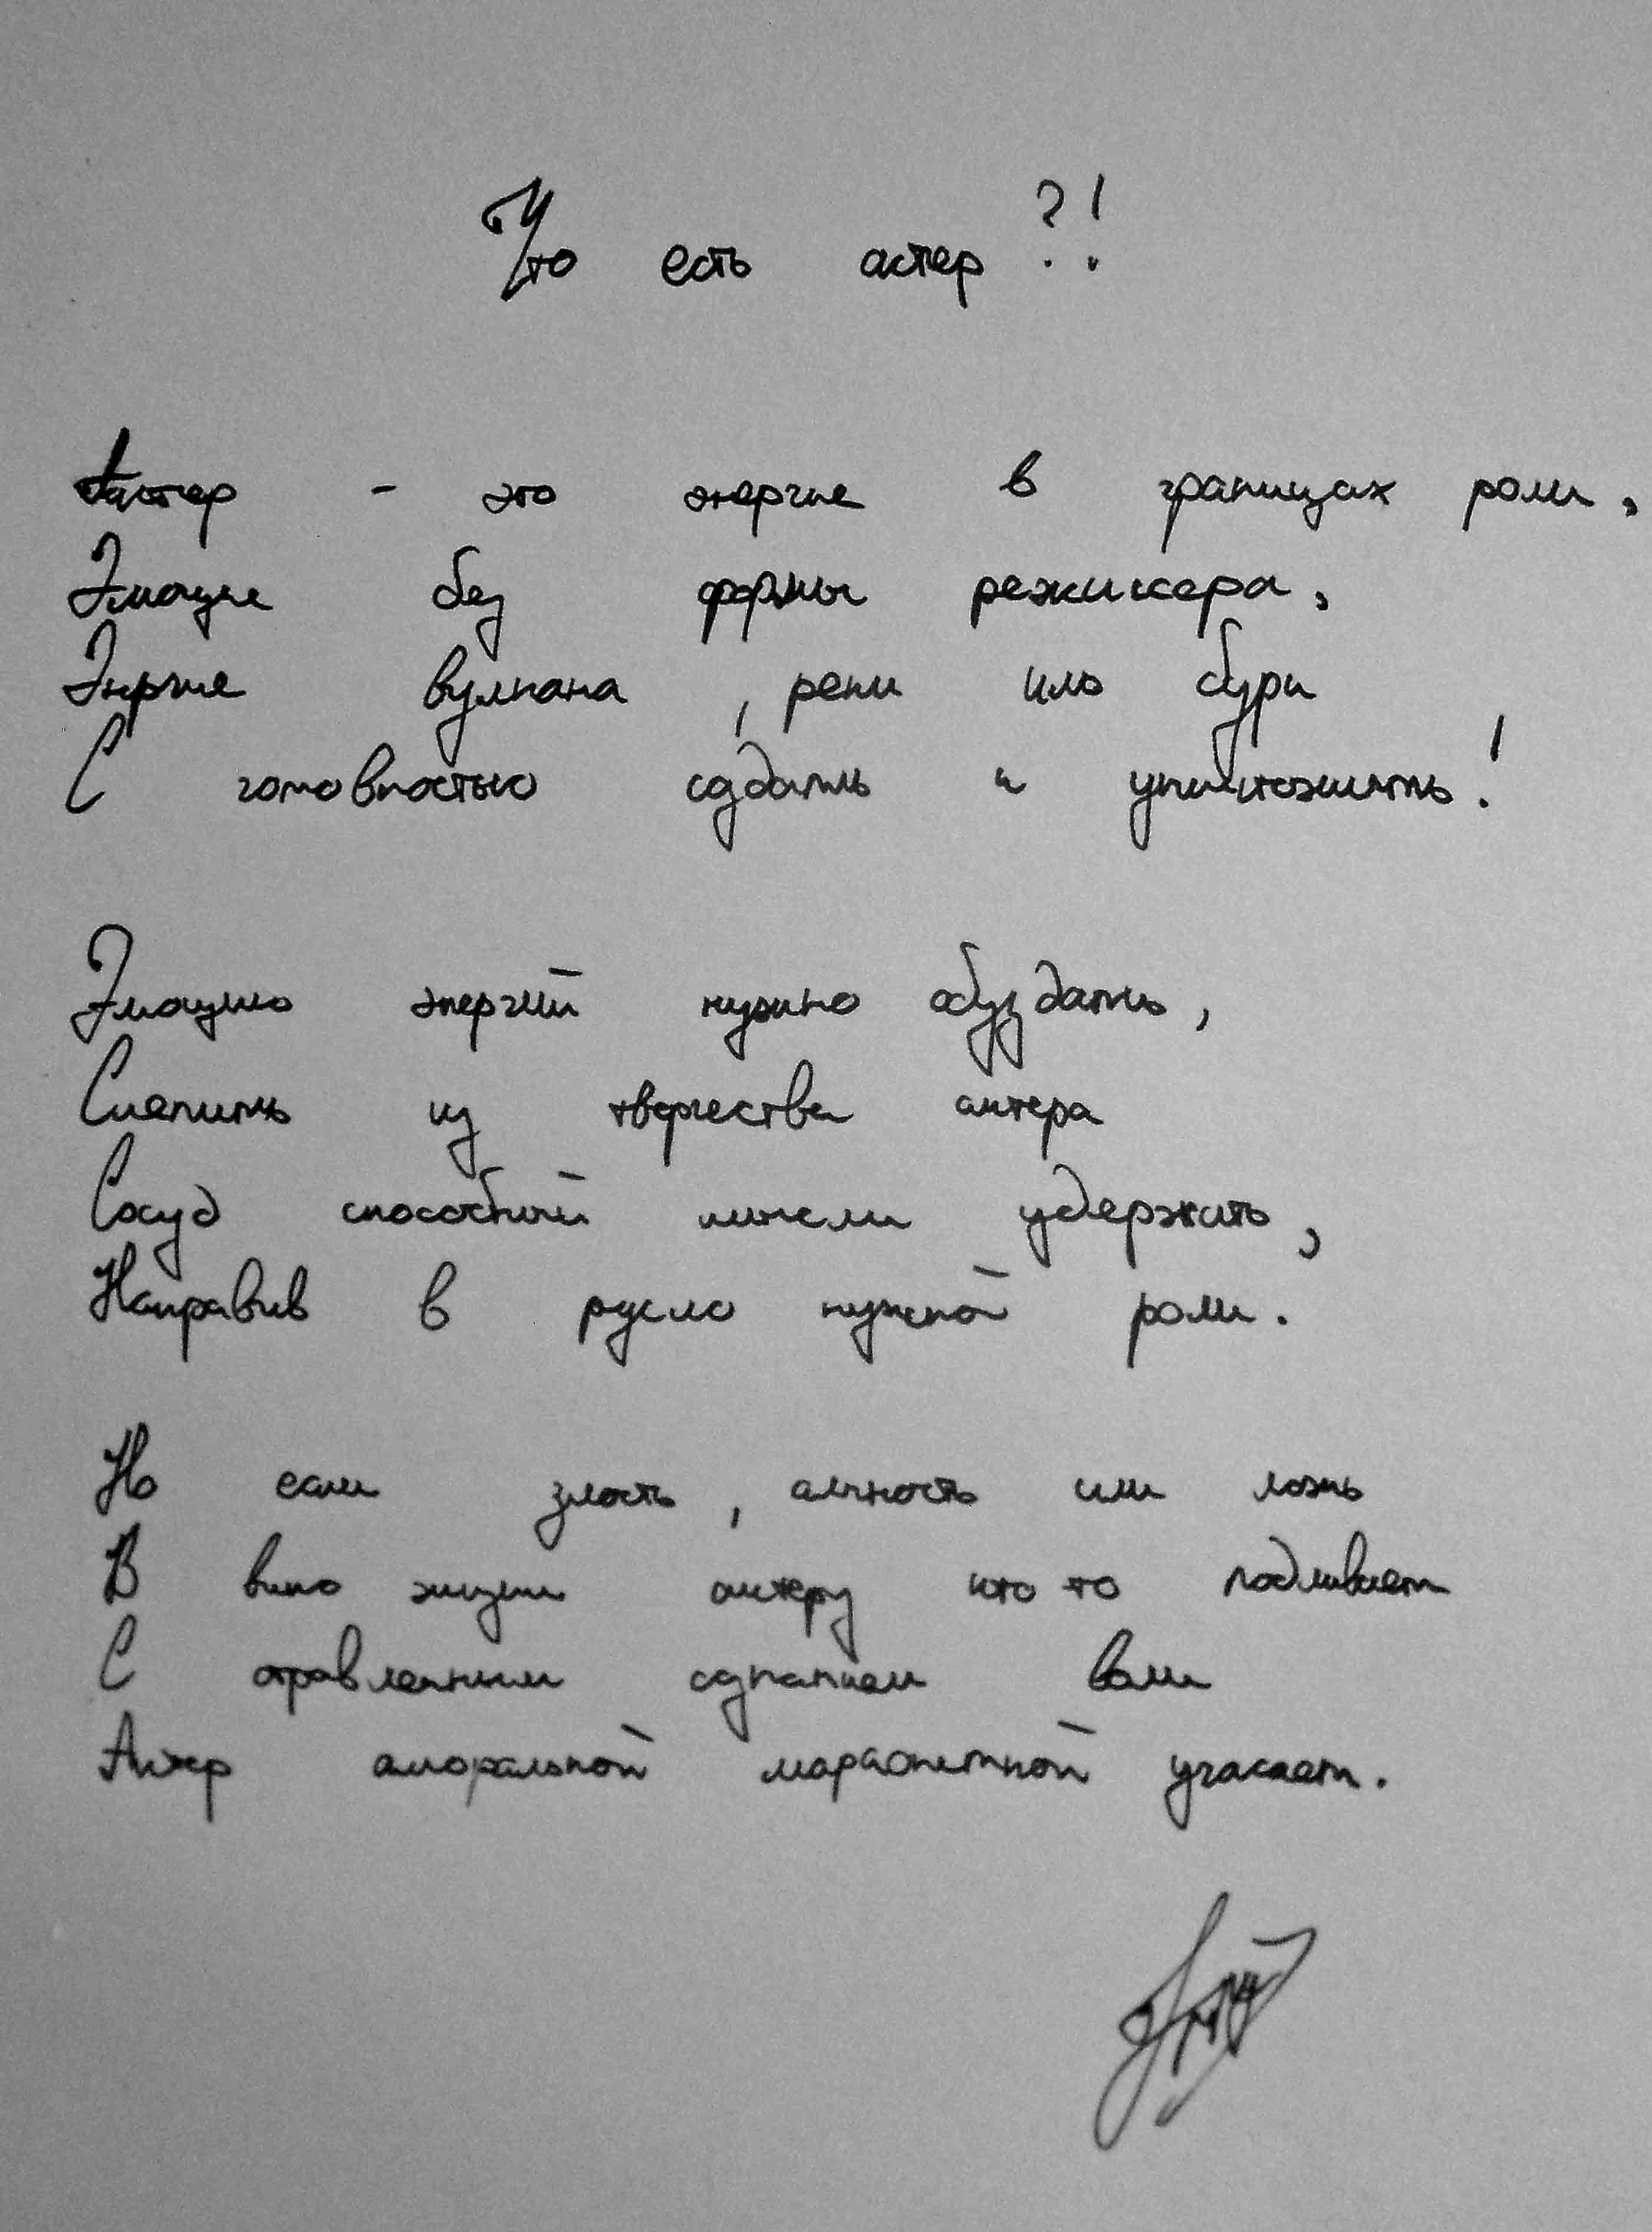 Что есть актер?!
Актер - это энергия в границах роли,
Эмоция без формы режиссера,
Энргия вулкана, реки иль бури
С готовностью создать и уничтожить!
Эмоцию энергий нужно обуздать,
Слепить из творчества актера
Сосуд способный мысли удержать,
Направив в русло нужной роли.
Но если злость, алчность или ложь
В вино жизни актеру кто то подливает
С отравленным сознанием воли
Актер аморальной марионеткой угасает.